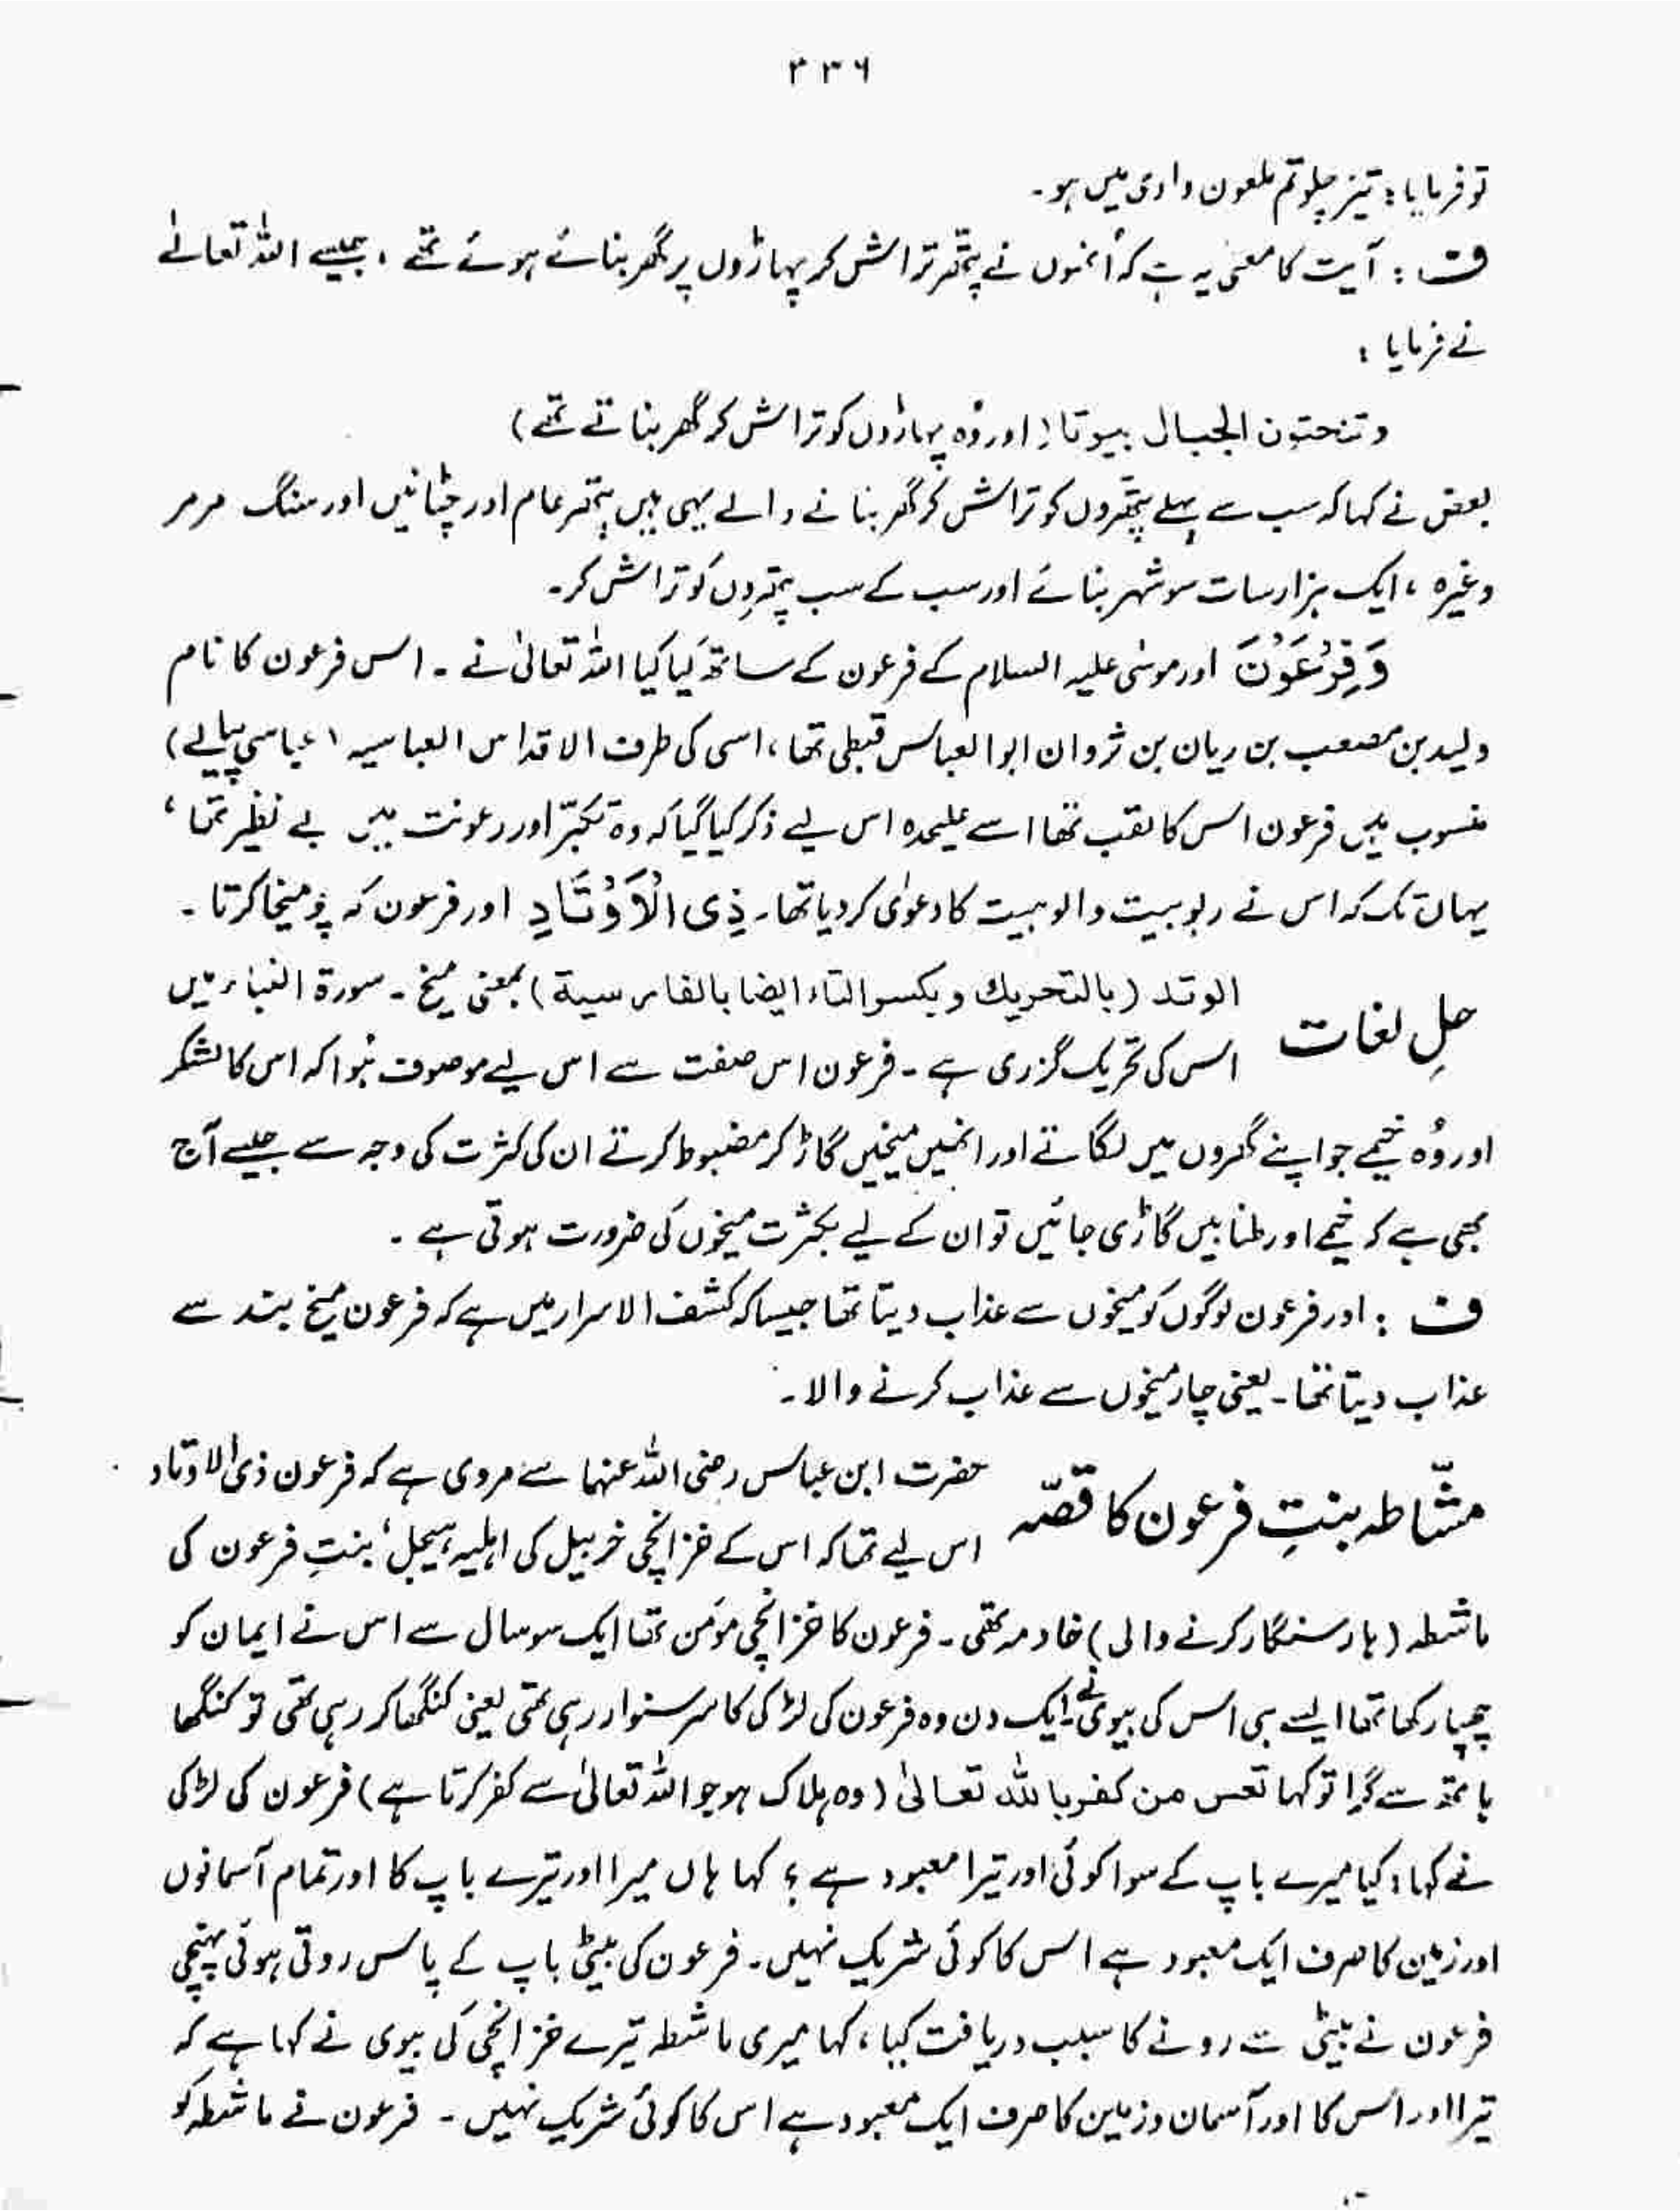 ۳۳۶
تو فرمایا: تیز چلو تم ملعون وادی میں ہو۔
ف : آیت کا معنی یہ ہے کہ اُنھوں نے پتھر تراش کر پہاڑوں پر گھر بنائے ہوئے تھے ، جیسے اللہ تعالےٰ
نے فرمایا :
وتنحتون الجبال بیوتا (اور وُہ پہاڑوں کو تراش کر گھر بناتے تھے)
بعض نے کہا کہ سب سے پہلے پتھروں کو تراش کر گھر بنانے والے یہی ہیں پتھر عام اور چٹانیں اور سنگ مرمر
وغیرہ ، ایک ہزار سات سو شہر بنائے اور سب کے سب پتھروں کو تراش کر۔
وَفِرْعَوْنَ اور موسٰی علیہ السلام کے فرعون کے ساتھ کیا کیا اللہ تعالیٰ نے ۔ اس فرعون کا نام
ولید بن مصعب بن ریان بن ثروان ابوالعباس قبطی تھا ، اسی کی طرف الاقداس العباسیہ (عباسی پیالے)
منسوب ہیں فرعون اس کا لقب تھا اسے علیحدہ اس لیے ذکر کیا گیا کہ وہ تکبّر اور رعونت میں بے نظیر تھا ،
یہاں تک کہ اس نے ربوبیت والوہیت کا دعوٰی کر دیا تھا۔ ذِی الْاَوْتَادِ اور فرعون کہ چومیخا کرتا ۔
حلِ لغات الوتد (بالتحریك و بکسر التاء ایضا بالفارسیة) بمعنی میخ ۔ سورة النباء میں
اس کی تحریک گزری ہے ۔ فرعون اس صفت سے اس لیے موصوف ہُوا کہ اس کا لشکر
اور وُہ خیمے جو اپنے گھروں میں لگاتے اور انھیں میخیں گاڑ کر مضبوط کرتے ان کی کثرت کی وجہ سے جیسے آج
بھی ہے کہ خیمے اور طنابیں گاڑی جائیں تو ان کے لیے بکثرت میخوں کی ضرورت ہوتی ہے ۔
ف : اور فرعون لوگوں کو میخوں سے عذاب دیتا تھا جیسا کہ کشف الاسرار میں ہے کہ فرعون میخ بند سے
عذاب دیتا تھا۔ یعنی چار میخوں سے عذاب کرنے والا۔
مشّاطہ بنتِ فرعون کا قصّہ حضرت ابن عباس رضی اللہ عنہما سے مروی ہے کہ فرعون ذی الاوتاد
اس لیے تھا کہ اس کے خزانچی خربیل کی اہلیہ ہیجل ، بنتِ فرعون کی
ماشطہ (ہار سنگار کرنے والی) خادمہ تھی ۔ فرعون کا خزانچی مومن تھا ایک سو سال سے اس نے ایمان کو
چھپا رکھا تھا ایسے ہی اس کی بیوی نے ۔ ایک دن وہ فرعون کی لڑکی کا سر سنوار رہی تھی یعنی کنگھا کر رہی تھی تو کنگھا
ہاتھ سے گرا تو کہا تعس من کفر باللہ تعالیٰ (وہ ہلاک ہو جو اللہ تعالیٰ سے کفر کرتا ہے) فرعون کی لڑکی
نے کہا : کیا میرے باپ کے سوا کوئی اور تیرا معبود ہے ؟ کہا ہاں میرا اور تیرے باپ کا اور تمام آسمانوں
اور زمین کا صرف ایک معبود ہے اس کا کوئی شریک نہیں۔ فرعون کی بیٹی باپ کے پاس روتی ہوئی پہنچی
فرعون نے بیٹی سے رونے کا سبب دریافت کیا ، کہا میری ماشطہ تیرے خزانچی کی بیوی نے کہا ہے کہ
تیرا اور اُس کا اور آسمان وزمین کا صرف ایک معبود ہے اس کا کوئی شریک نہیں ۔ فرعون نے ماشطہ کو